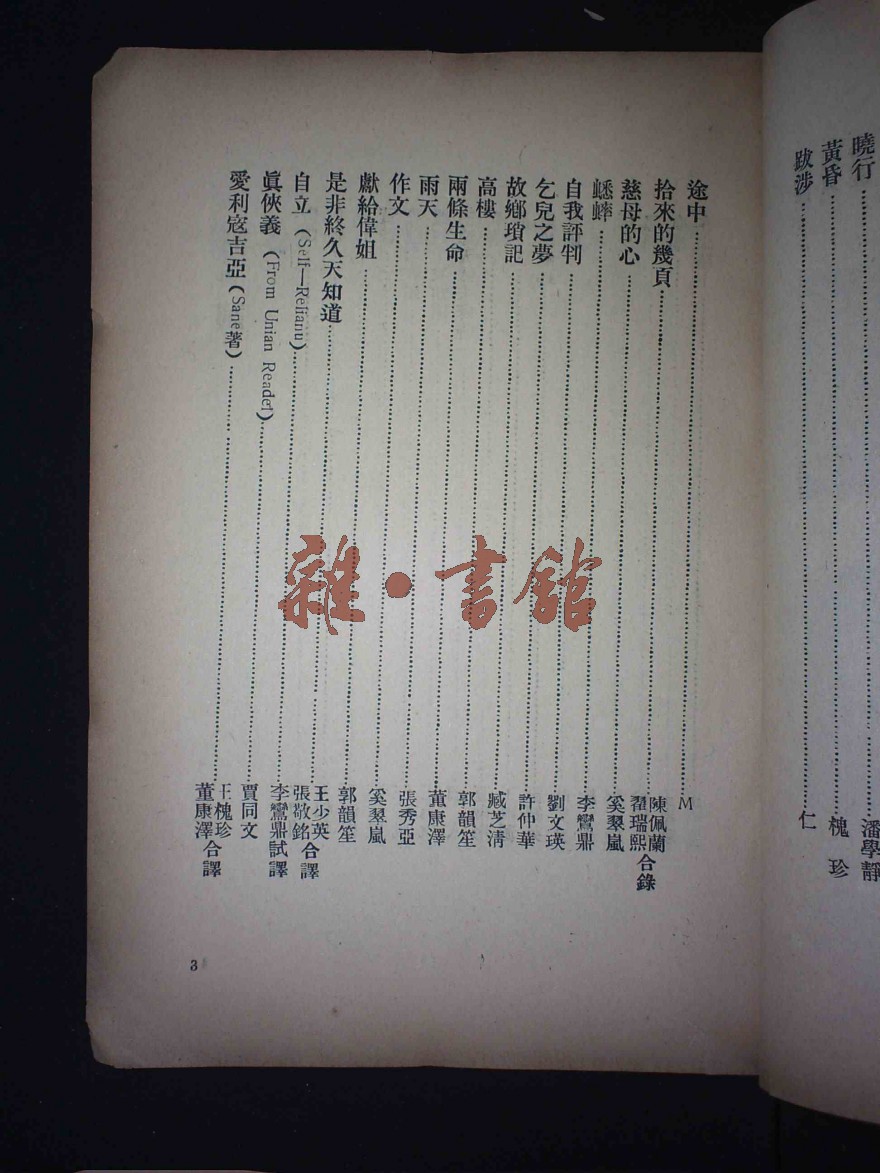 曉行……潘學靜
黃昏……槐珍
跋涉……仁
途中……M
拾來的幾頁……陳佩蘭 翟瑞熙合錄
慈母的心……奚翠嵐
蟋蟀……李鸞鼎
自我評判……劉文瑛
乞兒之夢……許仲華
故鄉瑣記……臧芝淸
高樓……郭韻笙
兩條生命……董康澤
雨天……張秀亞
作文……奚翠嵐
獻給偉姐……郭韻笙
是非終久天知道……王少英 張敬銘合譯
自立（Self—Relianu）……李鸞鼎試譯
眞俠義（From Unian Reader）……賈同文
愛利寇吉亞（Sane著）……王槐珍 董康澤合譯
3
雜·書館